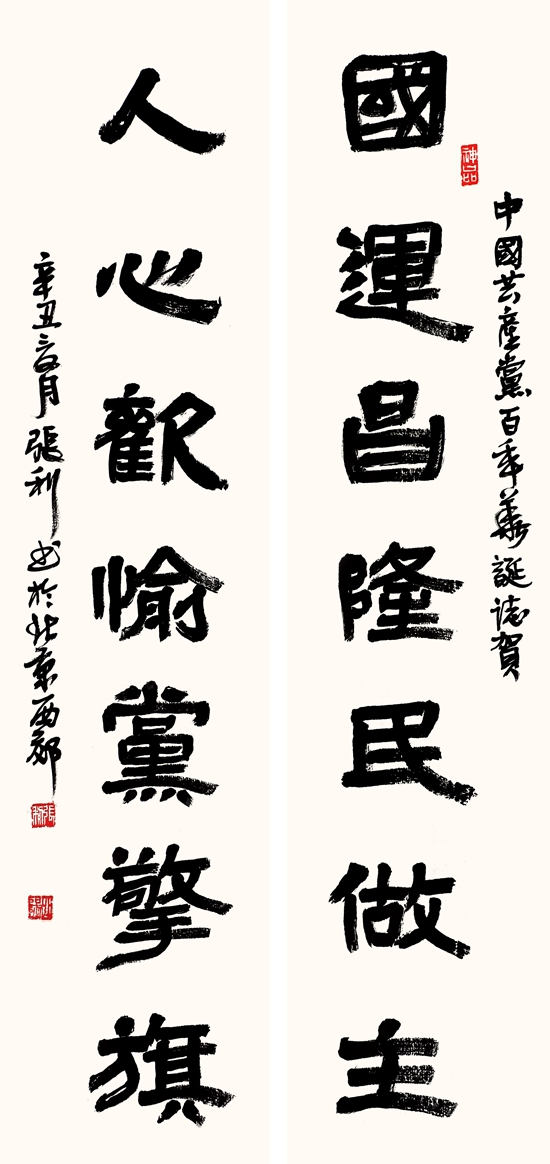 中國共產黨百年華誕誌賀
神品
國運昌隆民做主
人心歡愉黨擎旗
辛丑月張利书於北京西郊
張利